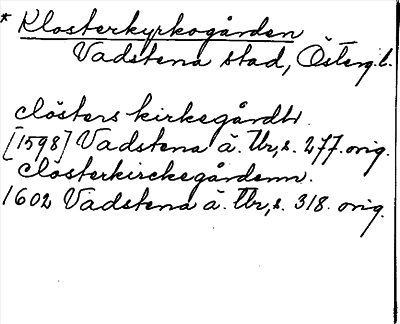 * Klosterkyrkogården
Vadstena stad, Österg.l.
clösters kirkegårdh
[1598] Vadstena ä. Tbr, s. 277. orig.
Closterkirckegårdenn.
1602 Vadstena ä. Tbr, s. 318. orig.